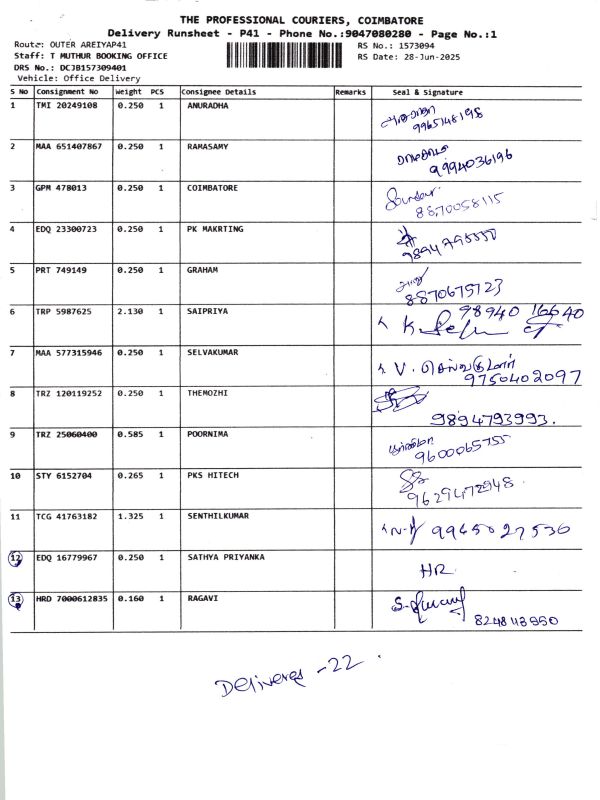 THE PROFESSIONAL COURIERS, COIMBATORE
Delivery Runsheet - P41 - Phone No.:9047080280 - Page No.:1
Route: OUTER AREIYAP41 RS No.: 1573094
Staff: T MUTHUR BOOKING OFFICE RS Date: 28-Jun-2025
DRS No.: DCJB157309401
Vehicle: Office Delivery
S No Consignment No Weight PCS Consignee Details Remarks Seal & Signature
1 TMI 20249108 0.250 1 ANURADHA
9965148198
2 MAA 651407867 0.250 1 RAMASAMY
9994036196
3 GPM 478013 0.250 1 COIMBATORE
8870058115
4 EDQ 23300723 0.250 1 PK MAKRTING
5 PRT 749149 0.250 1 GRAHAM
8870675723
6 TRP 5987625 2.130 1 SAIPRIYA 98940 16640
7 MAA 577315946 0.250 1 SELVAKUMAR V. செல்வகுமார்
9750402097
8 TRZ 120119252 0.250 1 THEMOZHI
9894793993.
9 TRZ 25060400 0.585 1 POORNIMA
9600065755
10 STY 6152704 0.265 1 PKS HITECH
9629472948.
11 TCG 41763182 1.325 1 SENTHILKUMAR 9965027536
12 EDQ 16779967 0.250 1 SATHYA PRIYANKA
HR
13 HRD 7000612835 0.160 1 RAGAVI
Deliveres -22.